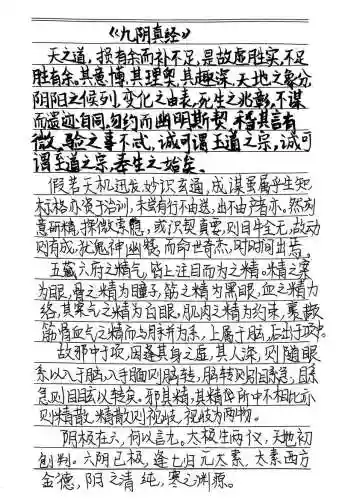 《九阴真经》
天之道，损有余而补不足，是故虚胜实，不足
胜有余。其意博，其理奥，其趣深，天地之象分，
阴阳之候列，变化之由表，死生之兆彰，不谋
而遗迹自同，勿约而幽明斯契，稽其言有
微，验之事不忒，诚可谓至道之宗，诚可
谓至道之宗，奉生之始矣。
假若天机迅发，妙识玄通，成谋虽属乎生知
标格亦资于治训，未尝有行不由送，出不由产者亦，然刻
意研精，探微索隐，或识契真要，则目牛全无，故动
则有成，犹鬼神幽赞，而命世奇杰，时时间出焉
五藏六府之精气，皆上注目而为之精。精之窠
为眼，骨之精为瞳子，筋之精为黑眼，血之精力
络，其窠气之精为白眼，肌肉之精为约束，裹撷
筋骨血气之精而与脉并为系，上属于脑，后出于项中
故邪中于项，因逢其身之虚，其人深，则随眼
系以入于脑，入于脑则脑转，脑转则引目系急，目系
急则目眩以转矣。邪其精，其精所中不相比亦
则精散，精散则视岐，视岐为两物。
阴极在六，何以言九。太极生两仪，天地初
创判。六阴已极，逢七归元太素，太素西方
金德，阳之清纯，寒之渊源。